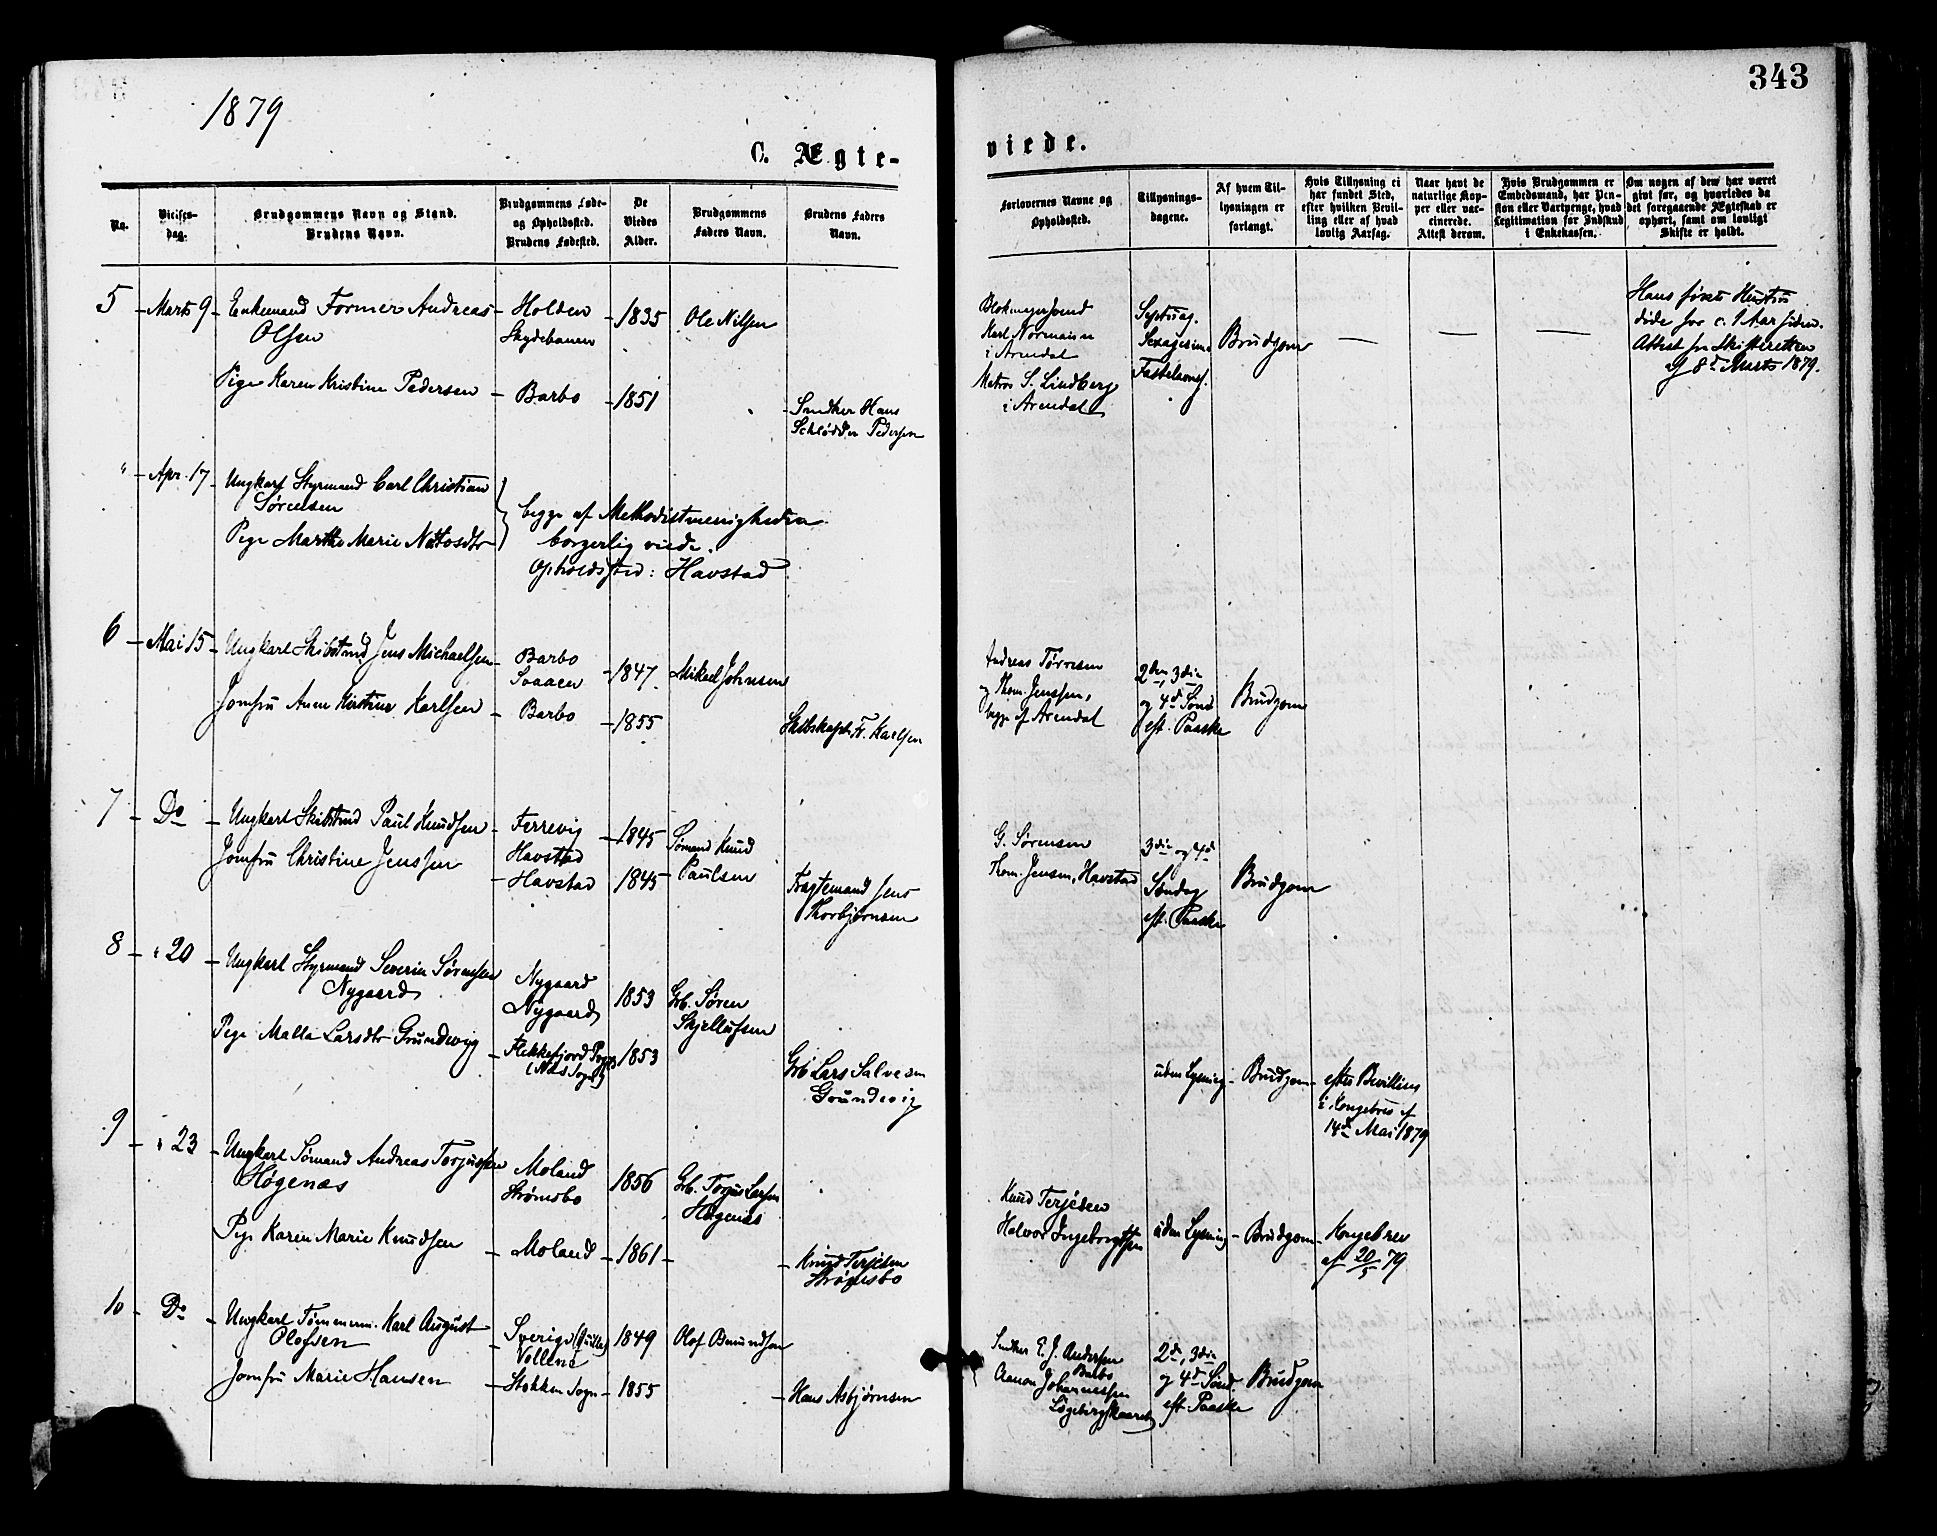 343
1879
C. Ægte-
viede.
No.
Vielses-
dag.
Brudgommens Navn og Stand.
Brudens Navn.
Brudgommens Føde-
og Opholdssted.
Brudens Fødested.
De
Viedes
Alder.
Brudgommens
Faders Navn.
Brudens Faders
Navn.
Forlovernes Navne og
Opholdssted.
Tillysnings-
dagene.
Af hvem Til-
lysningen er
forlangt.
Hvis Tillysning ei
har fundet Sted,
efter hvilken Bevil-
ling eller af hvad
lovlig Aarsag.
Naar havt de
naturlige Kop-
per eller vac-
cinerede.
Attest derom.
Hvis Brudgommen er
Embedsmand, har Pen-
sion eller Vartpenge, hvad
Legitimation for Indskud
i Enkekassen.
Om nogen af dem har været
gift før, og hvorledes da
det foregaaende Ægteskab er
ophørt, samt om lovligt
Skifte er holdt.
5 Marts 9 Enkemand Former Andreas
Olsen
Holden
Skydebanen
1835 Ole Nilsen
Pige Karen Kristine Pedersen Barbo 1851
Snedker Hans
Schlødder Pedersen
Blokmagersvend
Karl Normann
i Arendal
Matros S. Lindberg
i Arendal
Septuag.
Sexagesima
Fastelavns.
Brudgom — — —
Hans første Hustru
døde for c. 1 Aar siden.
Attest fra Skifteretten
af 8de Marts 1879.
" Apr. 17 Ungkarl Styrmand Carl Christian
Sørensen
Pige Marthe Marie
begge af Methodistmenigheden
borgerlig viede.
Opholdssted: Havstad
6 Mai 15 Ungkarl Skibstmd Jens Michaelsen
Barbo
1847 Mikael Johnsen
Jomfru Anne Kirstine Karlsen Barbo 1855
Skibskapt. Fr. Karlsen
Andreas Tørresen
og Thom. Jenssen,
begge af Arendal
2den, 3die
og 4de Sønd
eft. Paaske
Brudgom
7 Do Ungkarl Skibstmd Paul Knudsen
Ferrevig
Havstad
1845 Sømand Knud
Paulsen
Jomfru Christine Jenssen Havstad 1845
Fragtemand Jens
Thorbjørnsen
G. Sørensen
Thom. Jensen, Havstad
3die og 4de
Søndag
eft. Paaske
Brudgom
8 " 20 Ungkarl Styrmand Severin Sørensen
Nygaard
Nygaard
Nygaard
1853 Grb. Søren
Skjellufsen
Pige Malla Larsdtr Grundevig
Flekkefjord
1853
Grb Lars Salvesen
Grundevig
uden Lysning Brudgom
efter Bevilling
i Kongebrev af
14de Mai 1879
9 " 23 Ungkarl Sømand Andreas Torjussen
Høgenæs
Moland
Strømsbo
1856 Grb. Torjus Larsen
Høgenæs
Pige Karen Marie Knudsen Moland 1861
Knud Terjesen
Strømsbo
Knud Terjesen
Halvor Ingebregtsen
uden Lysning Brudgom
Kongebrev
af 20/5 79
10 Do Ungkarl Tømmerm. Karl August
Olofsen
Sverige
1849 Olof Bmundsen
Jomfru Marie Hansen Stokken Sogn 1855
Hans Asbjørnsen
Snedker E. J. Andersen
Barbo
Aanon Johannessen
2de, 3die
og 4de Sønd.
eft. Paaske
Brudgom